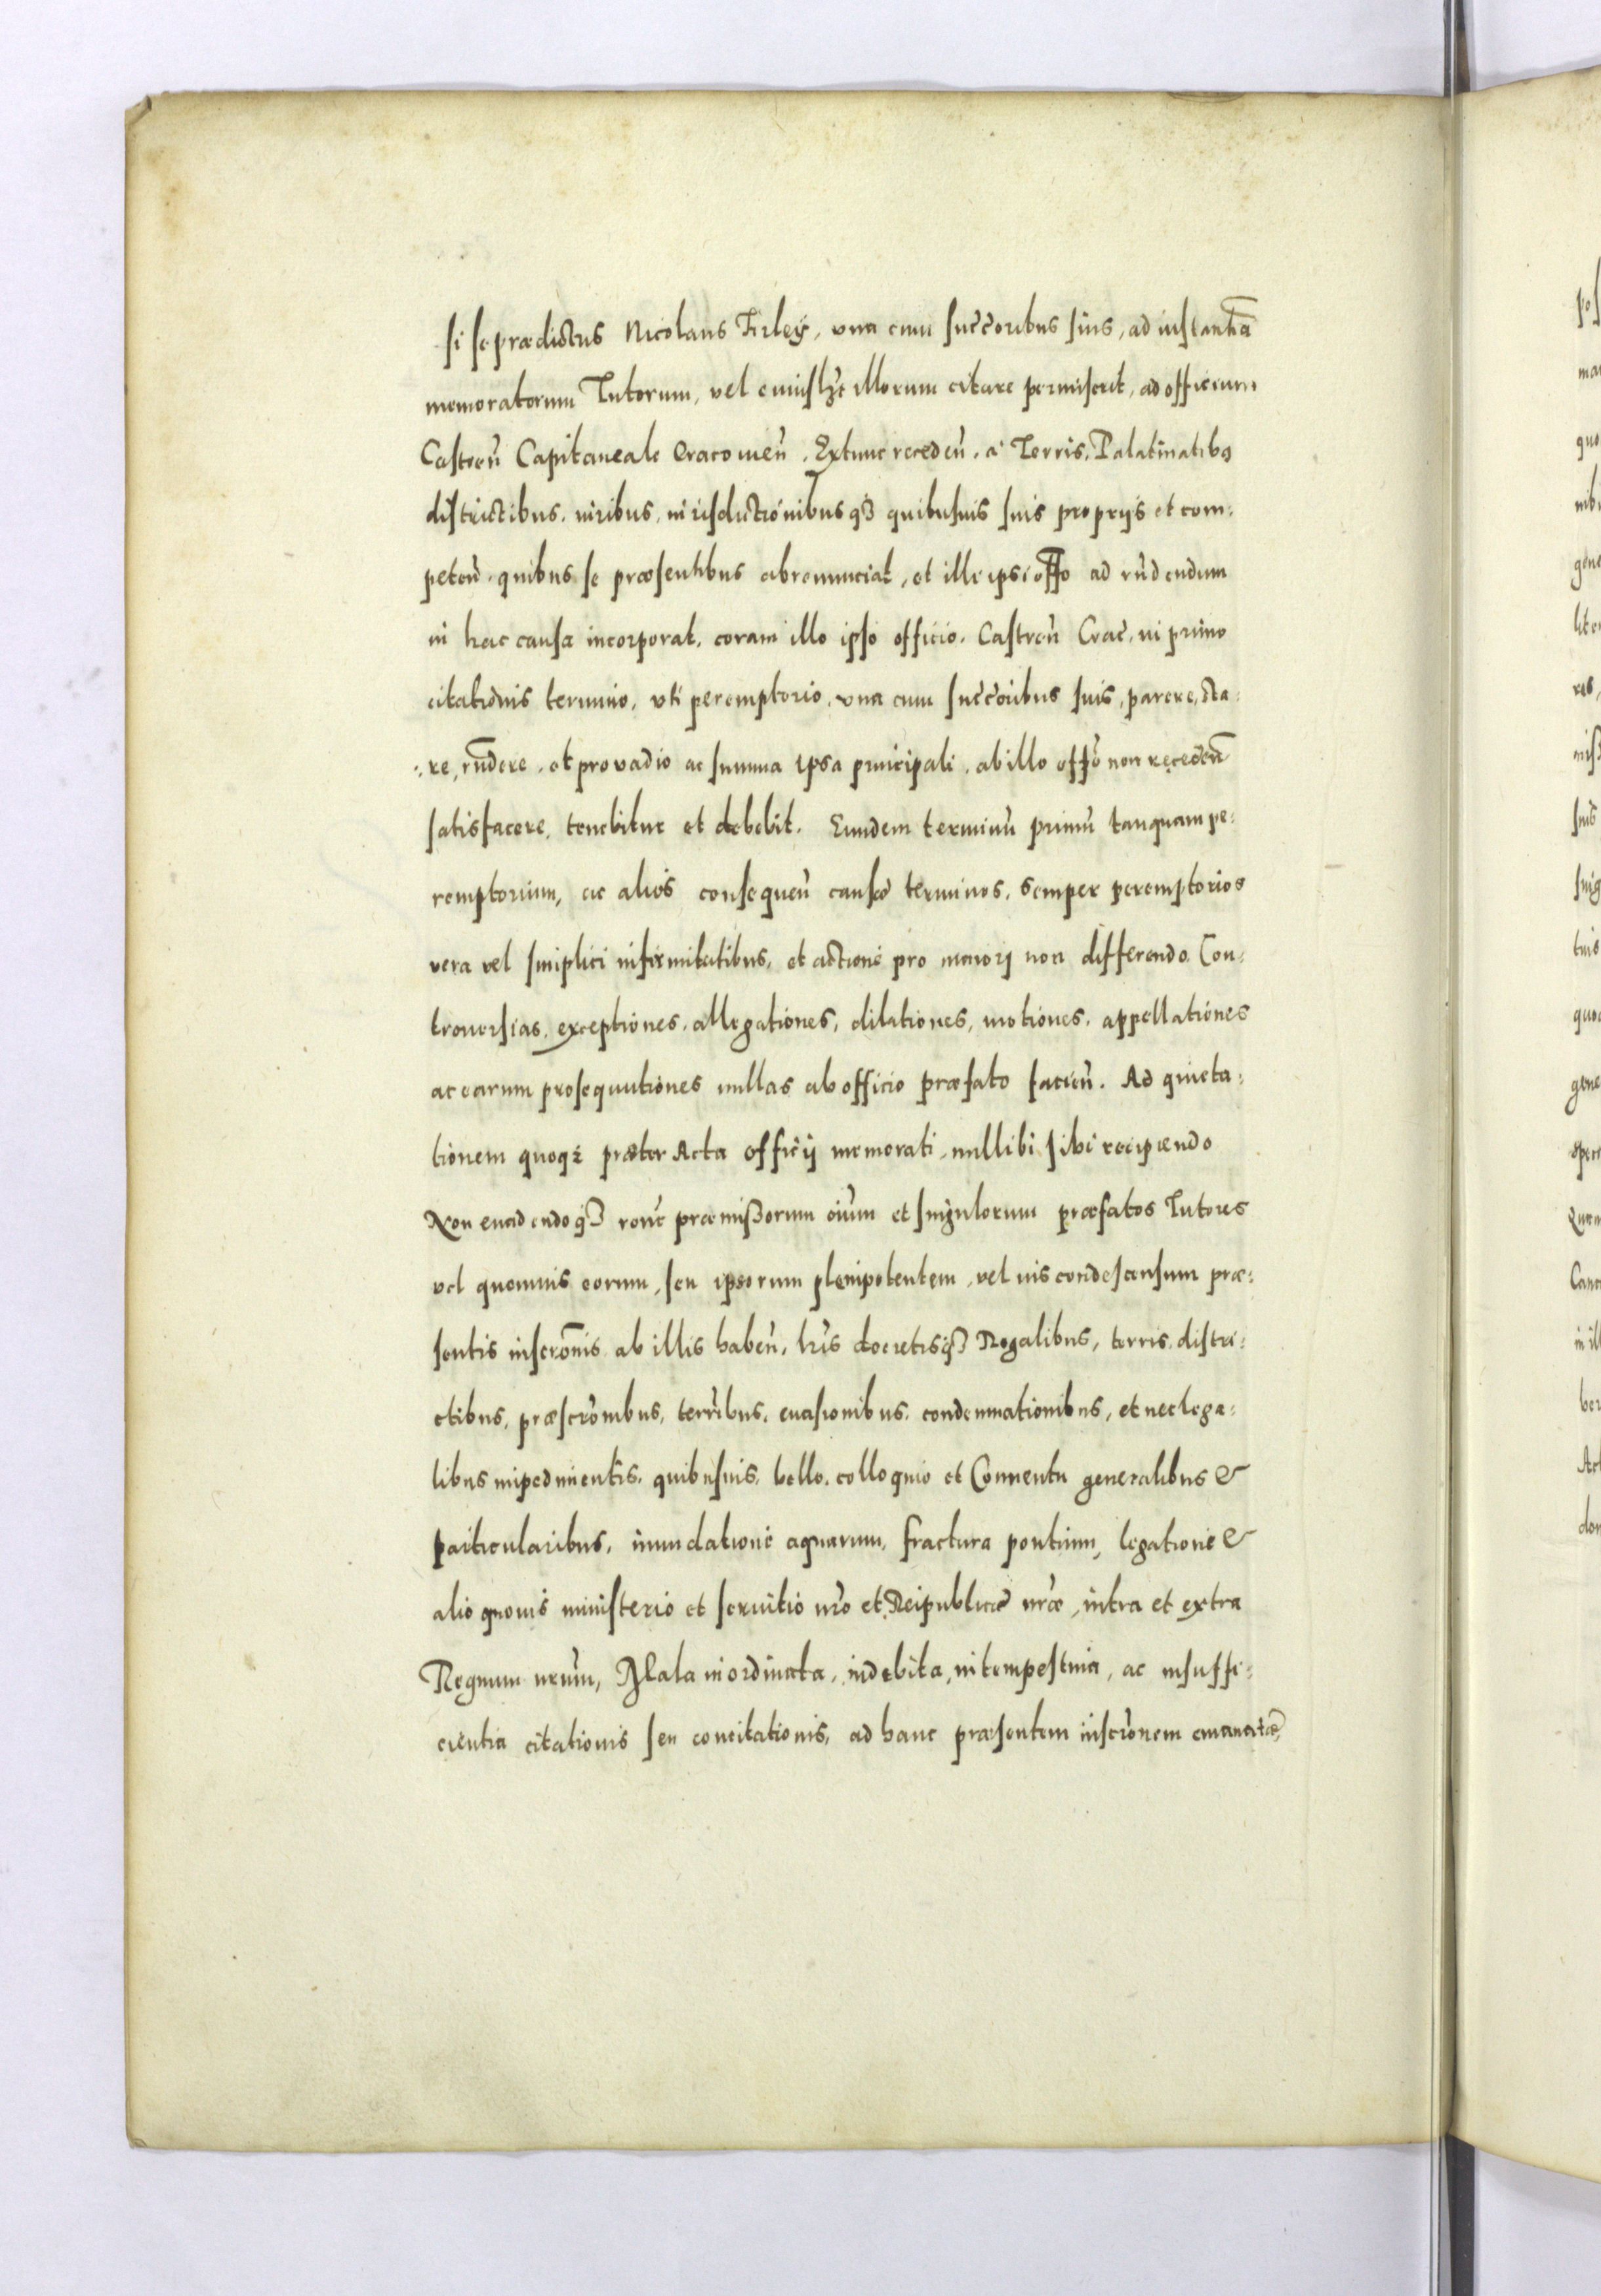 si se prædictus Nicolaus Firley, vna cum succ̃oribus suis, ad instantiã
memoratorum Tutorum, vel cuiuslꝫ illorum citare permiserit, ad officium
Castreñ Capitaneale Cracouieñ. Extunc recedeñ. à Terris, Palatinatibꝯ
districtibus, iuribus, iurisdictionibusqꝫ quibusuis suis proprijs et com:
peteñ. quibus se præsentibus abrenunciat, et illi ipsi offo ad rñdendum
in hac causa incorporat, coram illo ipso officio. Castreñ Crac̃, in primo
citationis termino, vti peremptorio, vna cum succ̃oribus suis, parere, sta:
:re, rñdere, et pro vadio ac summa ipsa principali, ab illo offõ non recedeñ
satisfacere, tenebitur et debebit. Eundem terminũ primũ tanquam pe:
remptorium, ac alios consequeñ causæ terminos, semper peremptorios
vera vel simplici infirmitatibus, et actione pro maiorj non differendo. Con:
trouersias, exceptiones, allegationes, dilationes, motiones, appellationes
ac earum prosequutiones nullas ab officio præfato facieñ. Ad quieta:
tionem quoqꝫ præter Acta officij memorati, nullibi sibi recipiendo
Non euadendoqꝫ rõne præmissorum oium et singulorum præfatos Tutores
vel quemuis eorum, seu ipsorum plenipotentem, vel ius condescensum præ:
sentis inscrõnis ab illis habeñ, lr̃is decretisqꝫ Regalibus, terris, distri:
ctibus, præscrõnibus, terr̃ibus, euasionibus, condemnationibus, et nec lega:
libus impedimentis, quibusuis, bello, colloquio et Conuentu generalibus &
particularibus, inundatione aquarum, fractura pontium, legatione &
alio quouis ministerio et seruitio nr̃o et Reipublicæ nr̃æ, intra et extra
Regnum nrum, Mala inordinata, indebita, intempestiua, ac insuffi:
cientia citationis seu concitationis, ad hanc præsentem inscrõnem emanatæ,